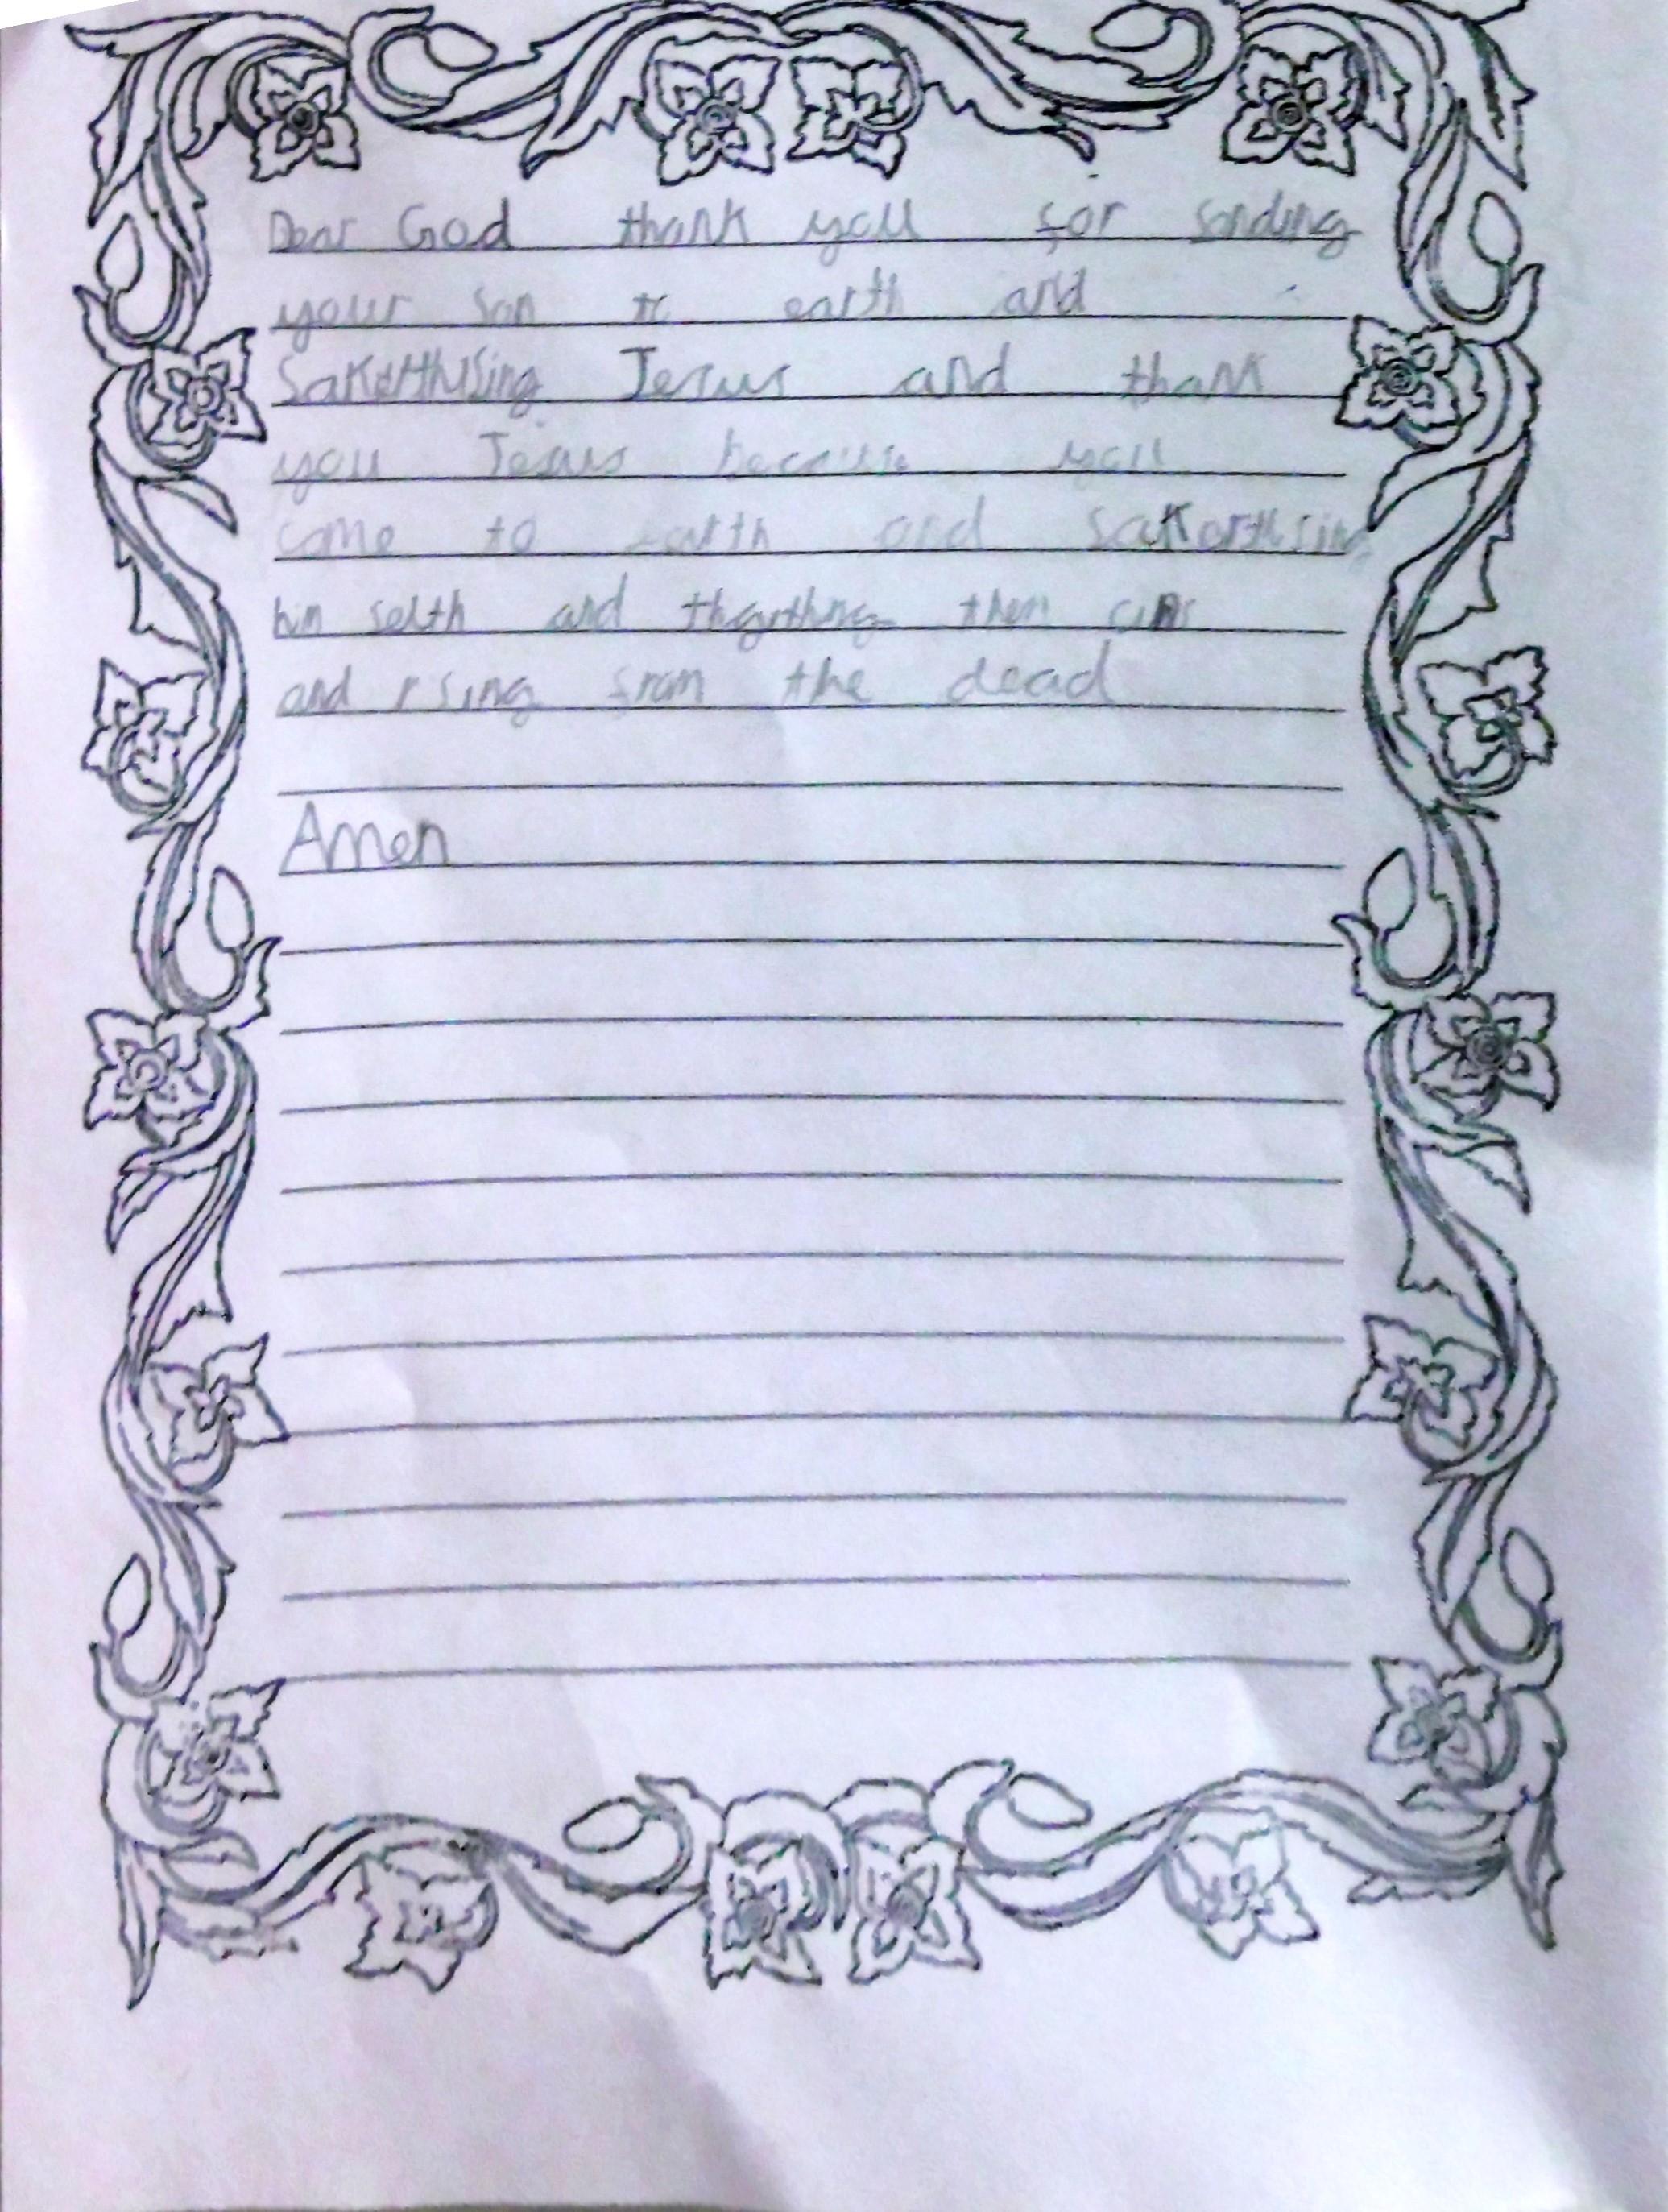 Dear God thank you for sending
your son to earth and
Sakerthising Jesus and thank
you Jesus because you
come to earth and
him selth and then sins
and rising from the dead
Amen